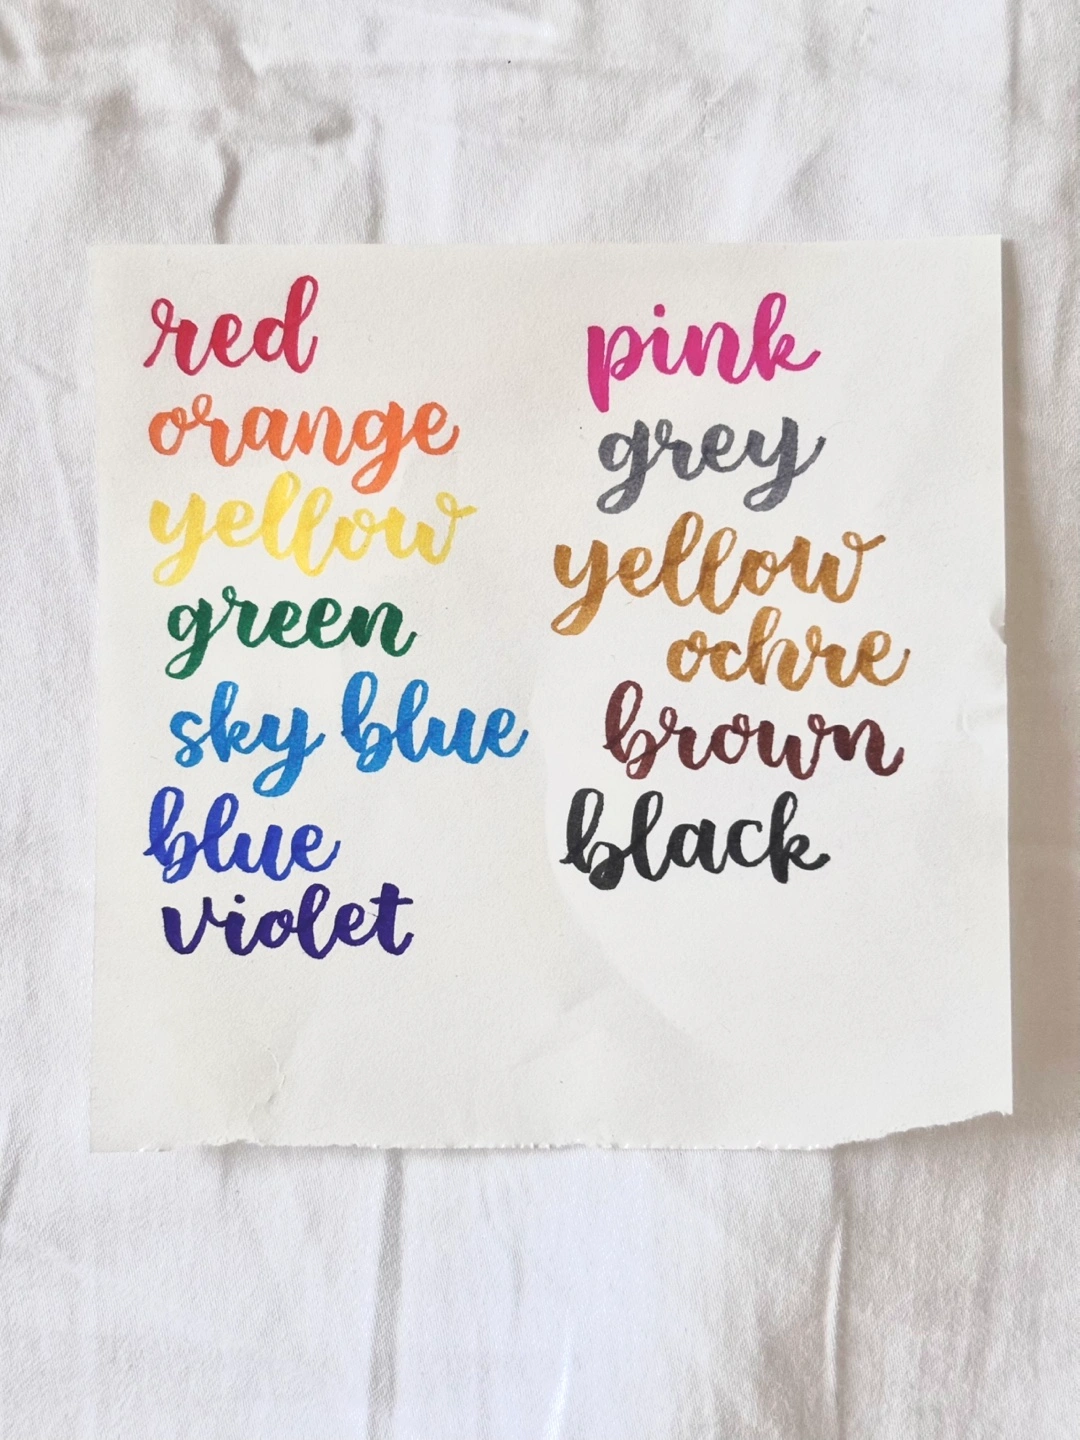 red
orange
yellow
green
sky blue
blue
violet
pink
grey
yellow
ochre
brown
black